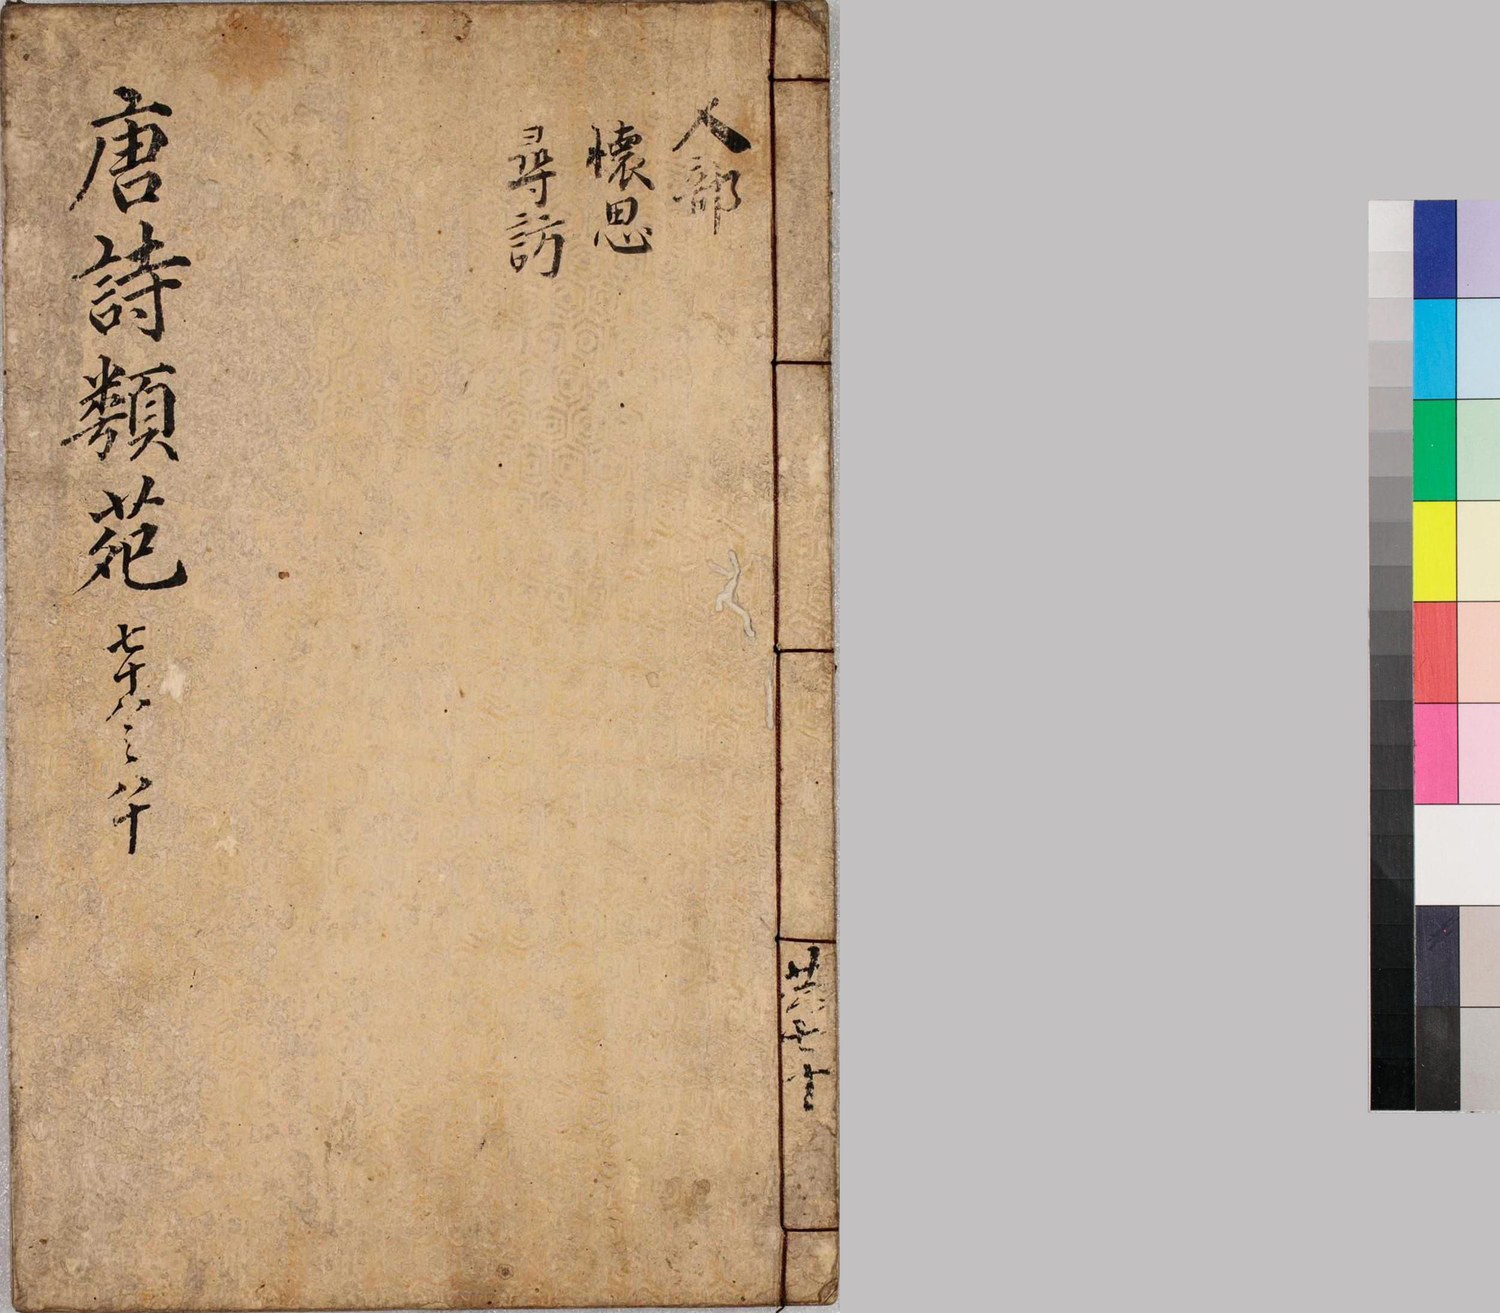 人部
懷思
尋訪
唐詩類苑 七十八之八十
共七十